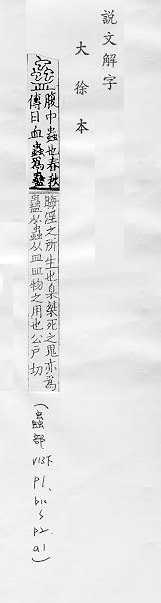 說文解字
大徐本
蠱
腹中蟲也春秋
傳曰皿蟲爲蠱
晦淫之所生也臬桀死之鬼亦爲
蠱从蟲从皿皿物之用也公戶切
(蟲部 V13下 P1, P2. a1)